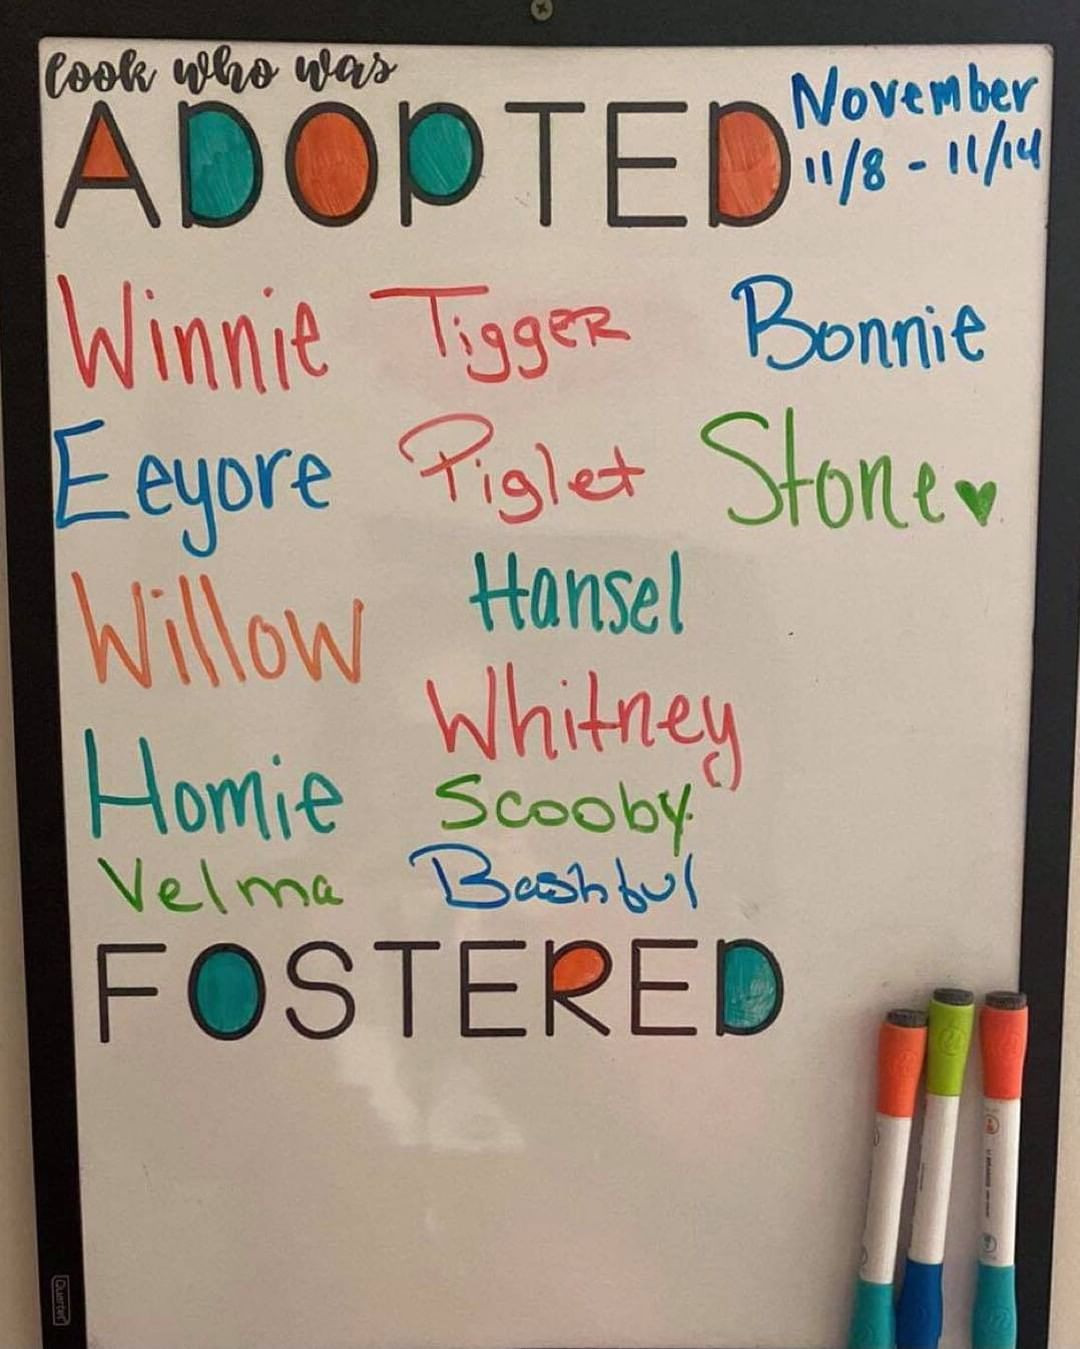 look who was
ADOPTED
November
11/8 - 11/14
Winnie Tigger Bonnie
Eeyore Piglet Stone
Willow Hansel
Whitney
Homie Scooby
Velma Bashful
FOSTERED
Quartet